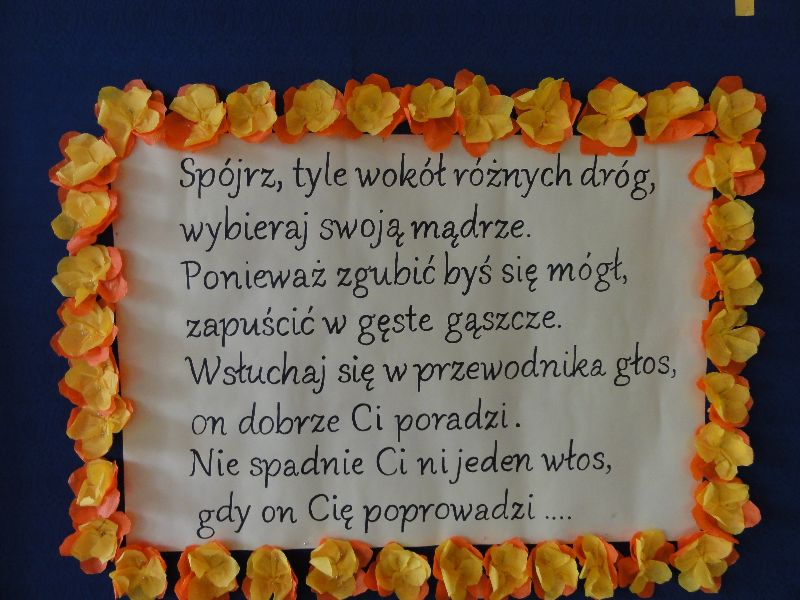 Spójrz, tyle wokół różnych dróg,
wybieraj swoją mądrze.
Ponieważ zgubić byś się mógł,
zapuścić w gęste gąszcze.
Wsłuchaj się w przewodnika głos,
on dobrze Ci poradzi.
Nie spadnie Ci ni jeden włos,
gdy on Cię poprowadzi ....